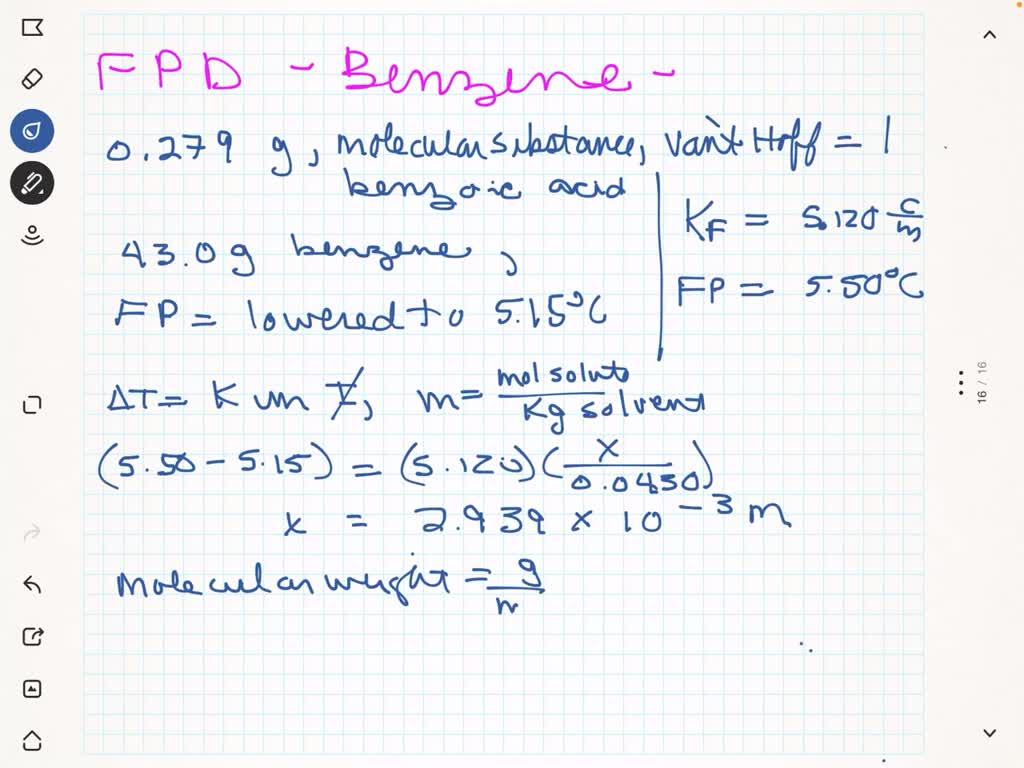 FPD - Benzene -
0.279 g, molecular substance, van't Hoff = 1
benzoic acid
KF = 5.120 C/m
43.0 g benzene,
FP = 5.50°C
FP = lowered to 5.15°C
ΔT = K m I, m = mol solute / Kg solvent
(5.50 - 5.15) = (5.120)(x / 0.0430)
x = 2.939 × 10⁻³ m
molecular weight = g / m
16 / 16